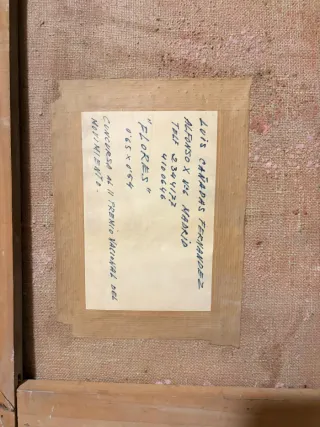 LUIS CAÑADAS FERNANDEZ
ALFONSO X Nº6 MADRID
TELF 2344177
4100646
"FLORES"
0'65 x 0'54
CONCURSO AL II PREMIO NACIONAL DEL
MOVIMIENTO.